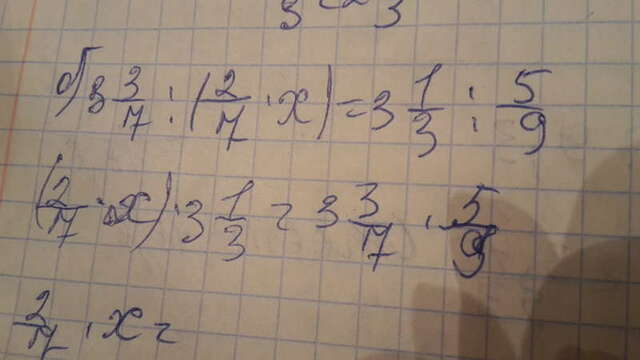 3 3
б) 3 3/7 : (2/7 · x) = 3 1/3 : 5/9
(2/7 · x) · 3 1/3 = 3 3/7 · 5/9
2/7 · x =